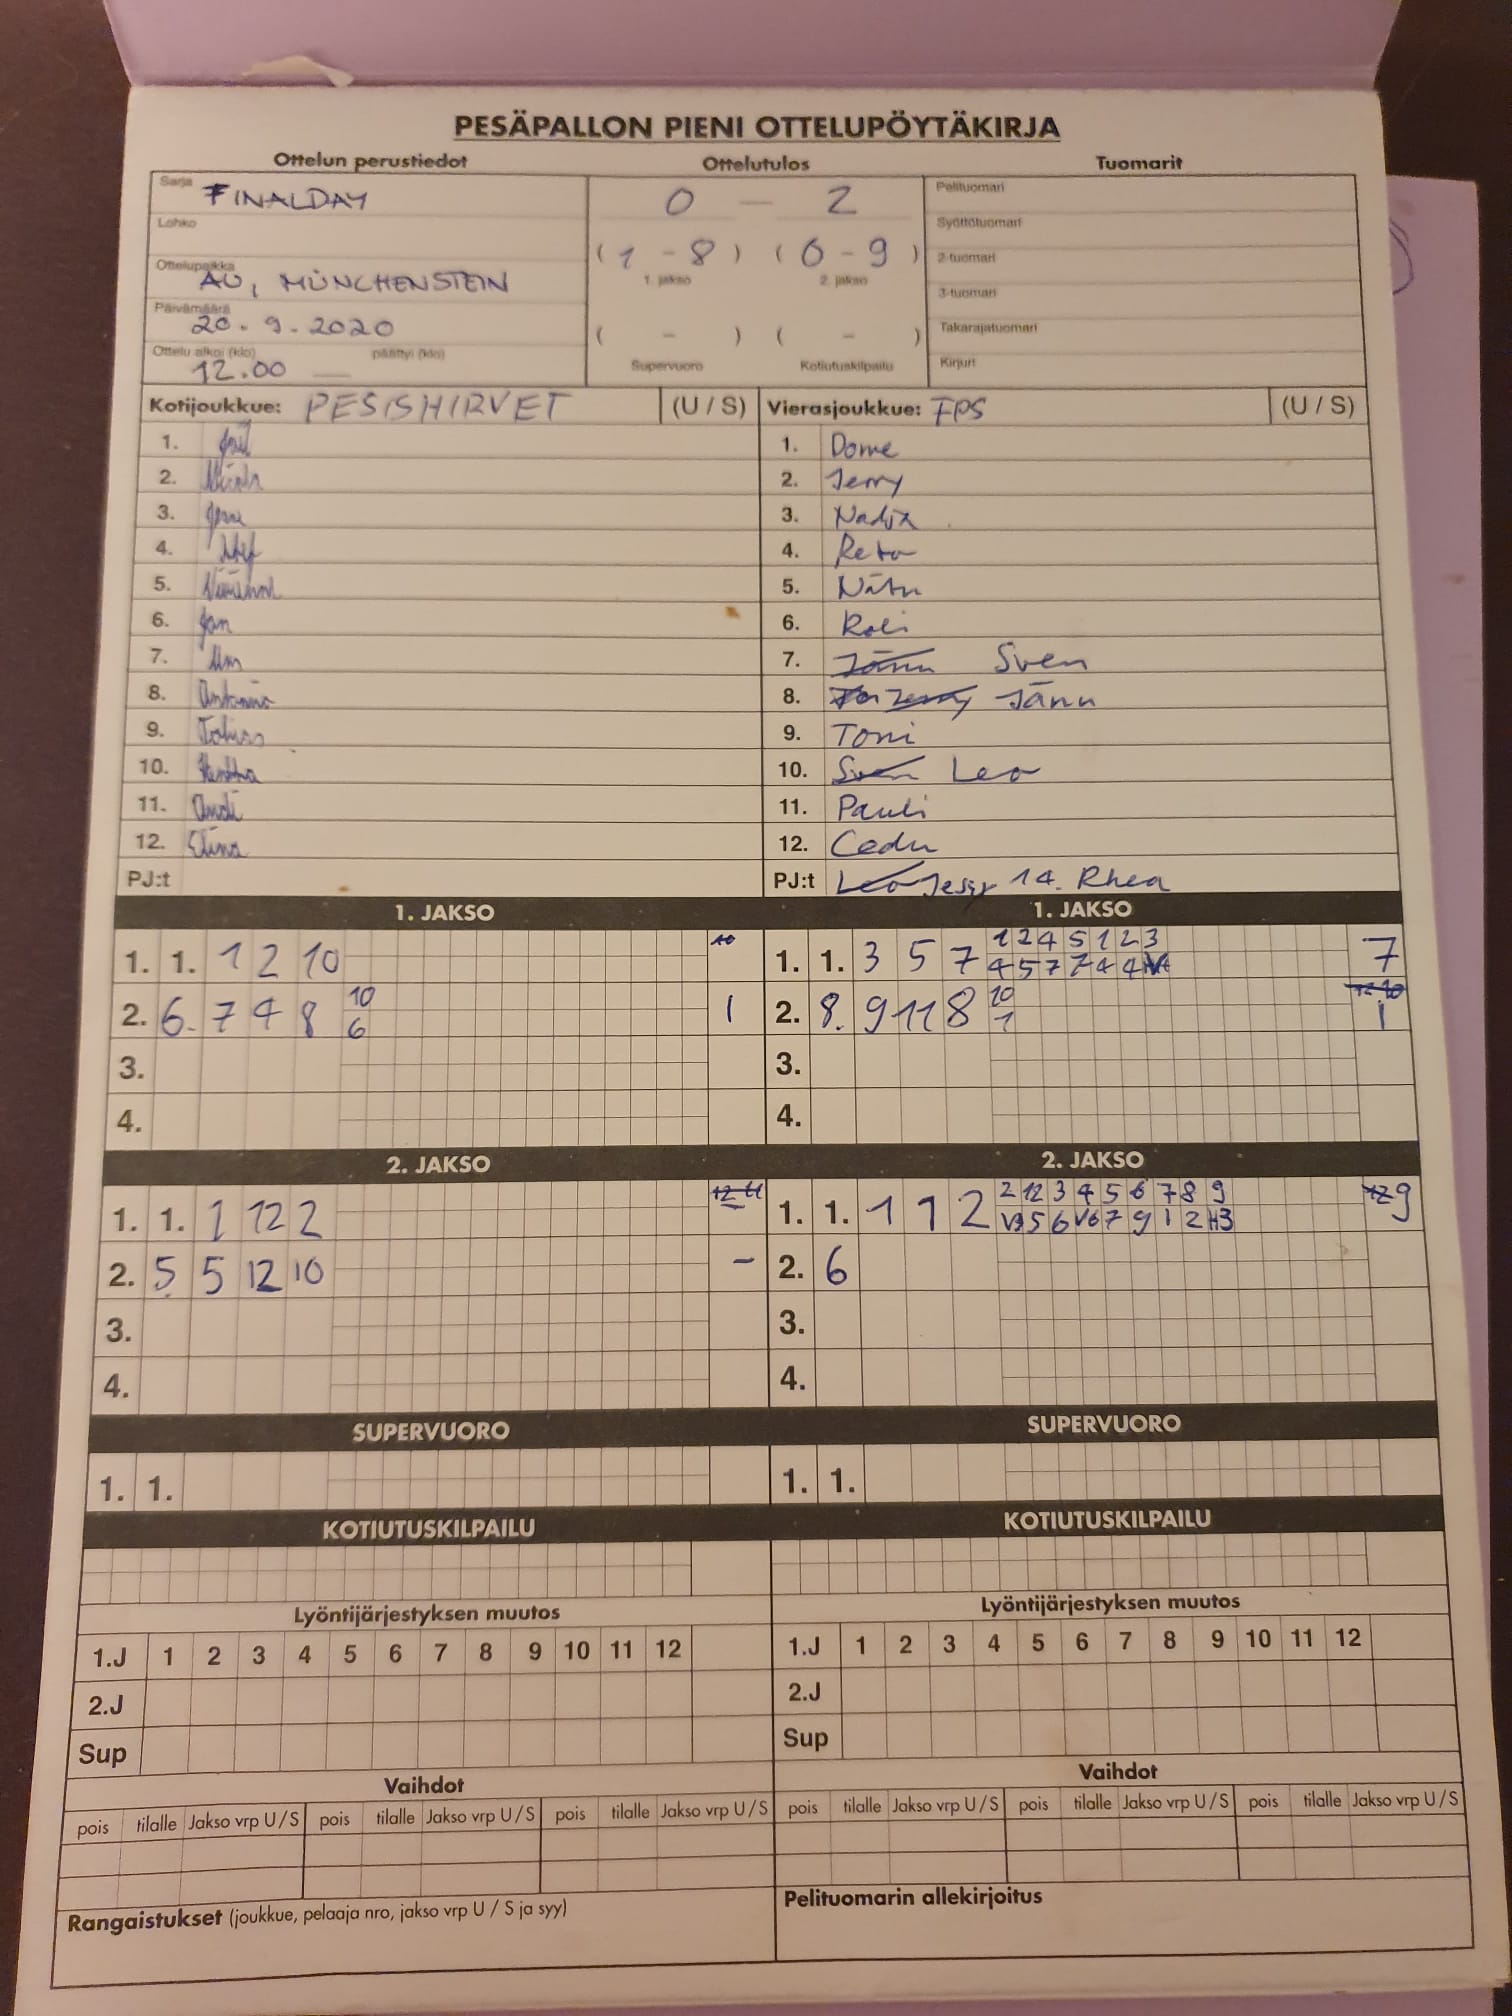 PESÄPALLON PIENI OTTELUPÖYTÄKIRJA
Ottelun perustiedot Ottelutulos Tuomarit
Sarja FINALDAY
Lohko
Ottelupaikka AU, MÜNCHENSTEIN
Päivämäärä 20.9.2020
Ottelu alkoi (klo) 12.00 päättyi (klo)
0 — 2
(1 - 8) (0 - 9)
1. jakso 2. jakso
( - ) ( - )
Supervuoro Kotiutuskilpailu
Pelituomari
Syöttötuomari
2-tuomari
3-tuomari
Takarajatuomari
Kirjuri
Kotijoukkue: PESISHIRVET (U / S) Vierasjoukkue: FPS (U / S)
1. 1. Dome
2. 2. Jerry
3. 3. Nadja
4. 4. Reto
5. 5. Nätu
6. Jan 6. Roli
7. 7. Jänu Sven
8. Antonio 8. Jänu
9. Tobias 9. Toni
10. 10. Sven Leo
11. Andi 11. Pauli
12. Elina 12. Cedu
PJ:t PJ:t Leo 14. Rhea
1. JAKSO 1. JAKSO
1. 1. 1 2 10
2. 6. 7 4 8 10 6 1
3.
4.
1. 1. 3 5 7 1 2 4 5 1 2 3 7
4 5 7 7 4 4
2. 8. 9 11 8 10 1 1
3.
4.
2. JAKSO 2. JAKSO
1. 1. 1 12 2
2. 5 5 12 10 –
3.
4.
1. 1. 1 1 2 2 12 3 4 5 6 7 8 9 9
V3 5 6 V6 7 9 1 2 H3
2. 6
3.
4.
SUPERVUORO SUPERVUORO
1. 1. 1. 1.
KOTIUTUSKILPAILU KOTIUTUSKILPAILU
Lyöntijärjestyksen muutos Lyöntijärjestyksen muutos
1.J 1 2 3 4 5 6 7 8 9 10 11 12 1.J 1 2 3 4 5 6 7 8 9 10 11 12
2.J 2.J
Sup Sup
Vaihdot Vaihdot
pois tilalle Jakso vrp U/S pois tilalle Jakso vrp U/S pois tilalle Jakso vrp U/S pois tilalle Jakso vrp U/S pois tilalle Jakso vrp U/S pois tilalle Jakso vrp U/S
Rangaistukset (joukkue, pelaaja nro, jakso vrp U / S ja syy) Pelituomarin allekirjoitus